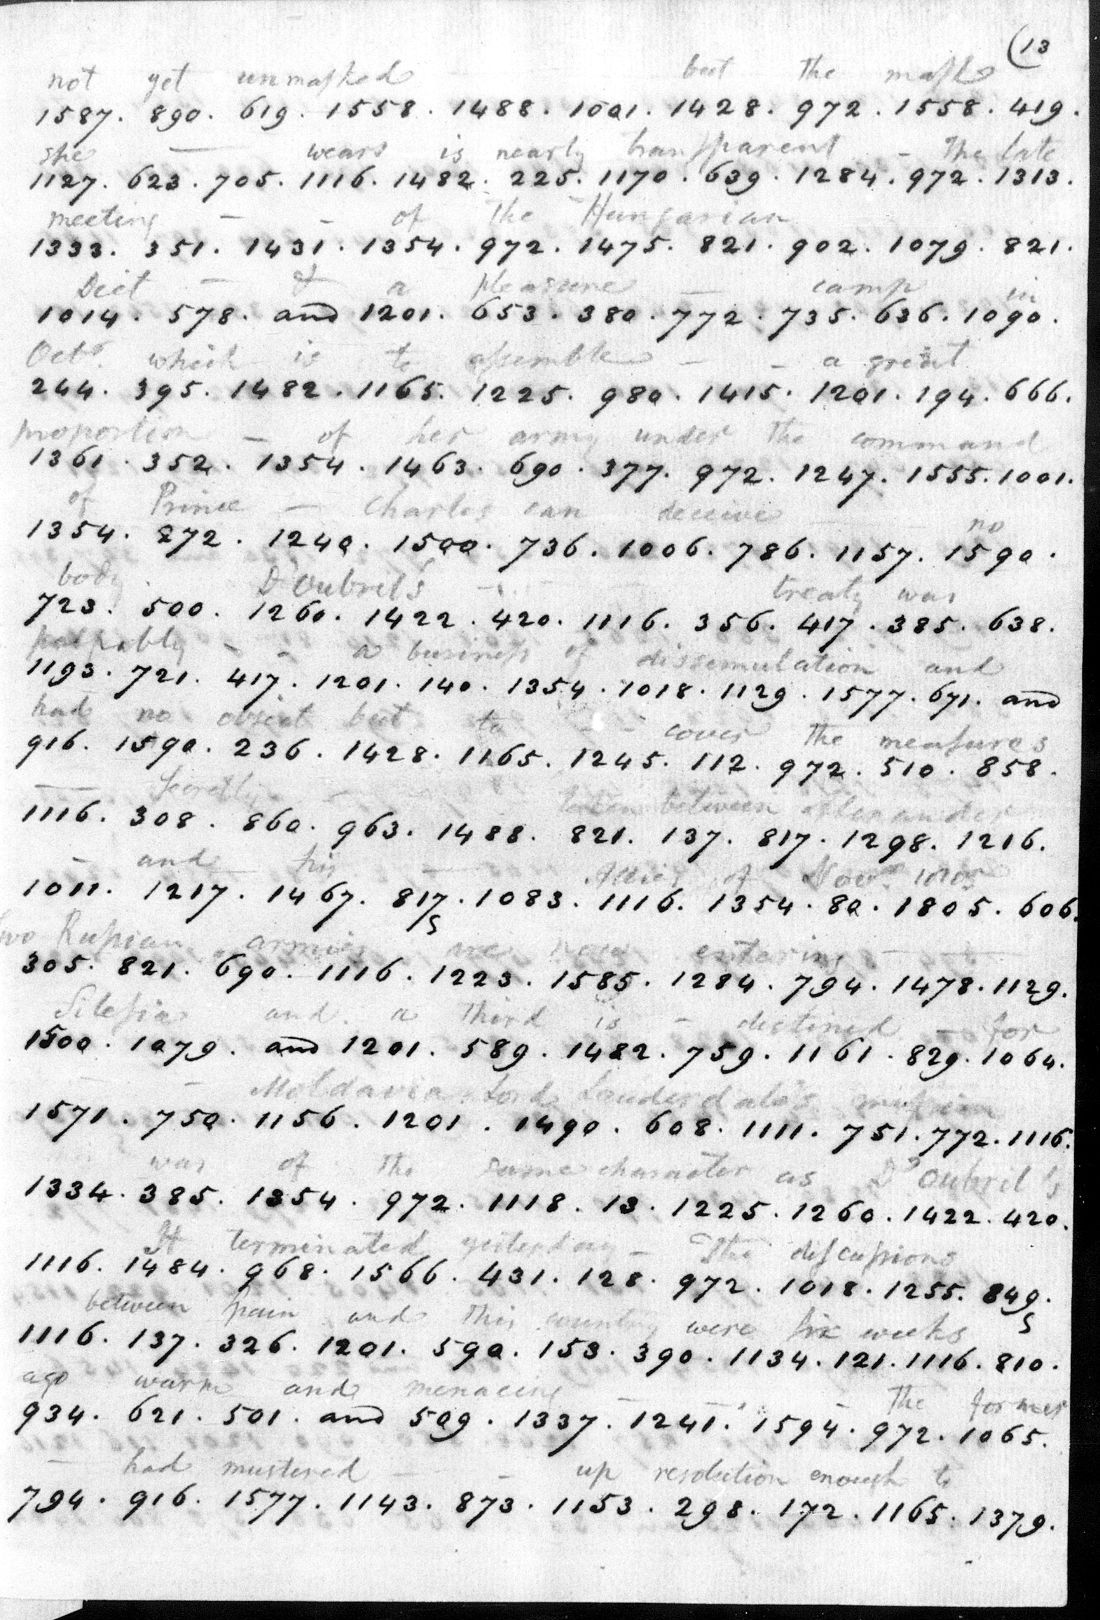 (13
not yet unmasked but the mask
1587. 890. 619. 1558. 1488. 1001. 1428. 972. 1558. 419.
she — wears is nearly transparent – The late
1127. 623. 705. 1116. 1482. 225. 1170. 639. 1284. 972. 1313.
meeting – – of the Hungarian
1333. 351. 1431. 1354. 972. 1475. 821. 902. 1079. 821.
Diet – & a pleasure — camp in
1014. 578. and 1201. 653. 380. 772. 735. 636. 1090.
Octr. which is to assemble – – a great
244. 395. 1482. 1165. 1225. 980. 1415. 1201. 194. 666.
proportion – of her army under the command
1361. 352. 1354. 1463. 690. 377. 972. 1247. 1555. 1001.
of Prince – Charles can deceive no
1354. 272. 1240. 1500. 736. 1006. 786. 1157. 1590.
body. D'Oubril's – treaty was
723. 500. 1260. 1422. 420. 1116. 356. 417. 385. 638.
palpably – – a business of dissimulation and
1193. 721. 417. 1201. 140. 1354. 1018. 1129. 1577. 671. and
had no object but to – cover the measures
916. 1590. 236. 1428. 1165. 1245. 112. 972. 510. 858.
— — secretly – taken between alexander
1116. 308. 860. 963. 1488. 821. 137. 817. 1298. 1216.
– and his — Allies of Novr. 1805
1011. 1217. 1467. 817. 1083. 1116. 1354. 80. 1805. 606.
s
two Russian armies are now entering – –
305. 821. 690. 1116. 1223. 1585. 1284. 794. 1478. 1129.
Silesia and a third is – destined – for
1500. 1079. and 1201. 589. 1482. 759. 1161. 829. 1064.
– – Moldavia Lord Lauderdale's mission
1571. 750. 1156. 1201. 1490. 608. 1111. 751. 772. 1116.
was of the same character as D'Oubril's
1334. 385. 1354. 972. 1118. 13. 1225. 1260. 1422. 420.
It terminated yesterday – The discussions
1116. 1484. 968. 1566. 431. 128. 972. 1018. 1255. 849.
s
between Spain and this country were six weeks
1116. 137. 326. 1201. 590. 153. 390. 1134. 121. 1116. 810.
ago warm and menacing – The former
934. 621. 501. and 509. 1337. 1241. 1594. 972. 1065.
— had mustered – – up resolution enough to
794. 916. 1577. 1143. 873. 1153. 298. 172. 1165. 1379.